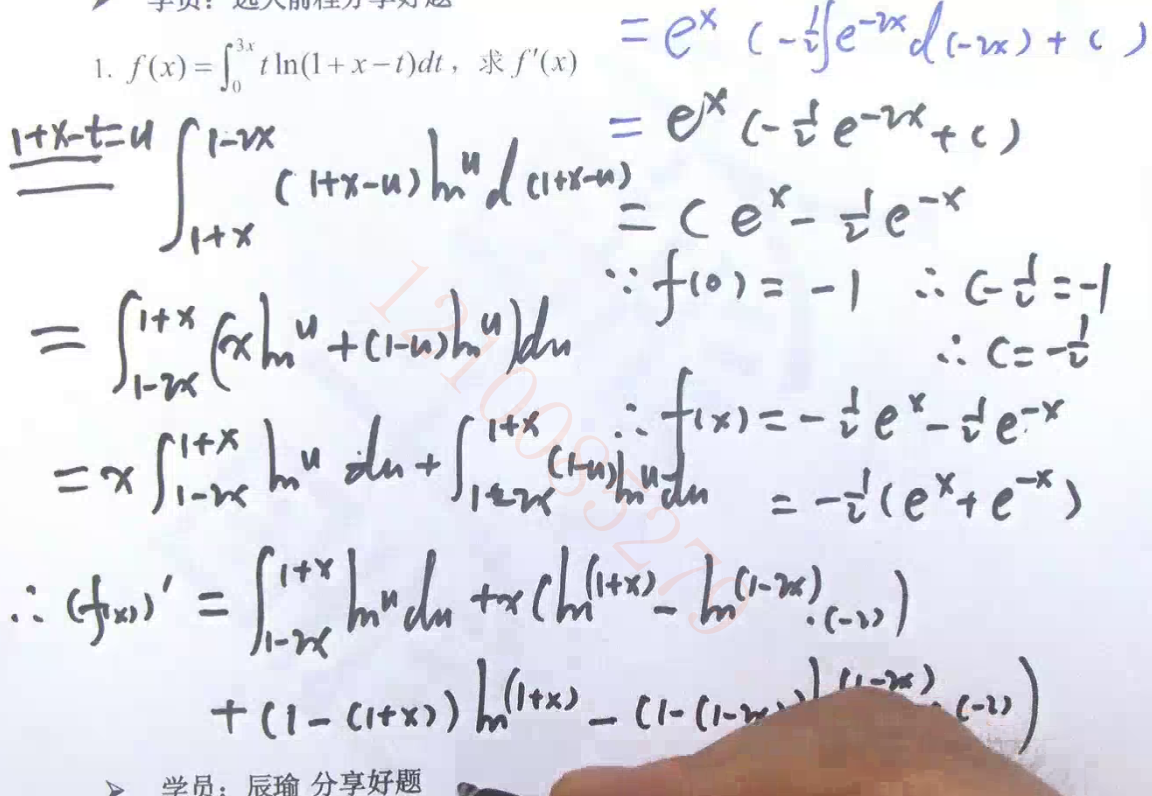 学员：远大前程分享好题
1. f(x) = ∫₀^{3x} t ln(1+x−t)dt，求 f′(x)
1+x-t=u ∫_{1+x}^{1-2x} (1+x-u) ln^u d(1+x-u)
= ∫_{1-2x}^{1+x} (x ln^u + (1-u) ln^u) du
= x ∫_{1-2x}^{1+x} ln^u du + ∫_{1-2x}^{1+x} (1-u) ln^u du
∴ (f(x))′ = ∫_{1-2x}^{1+x} ln^u du + x (ln^{(1+x)} - ln^{(1-2x)}·(-2))
+ (1-(1+x)) ln^{(1+x)} - (1-(1-2x)) (1-2x) (-2))
= e^x (-½∫e^{-2x} d(-2x) + C)
= e^x (-½ e^{-2x} + C)
= C e^x - ½ e^{-x}
∵ f(0) = -1 ∴ C-½ = -1
∴ C = -½
∴ f(x) = -½ e^x - ½ e^{-x}
= -½ (e^x + e^{-x})
学员：辰瑜 分享好题